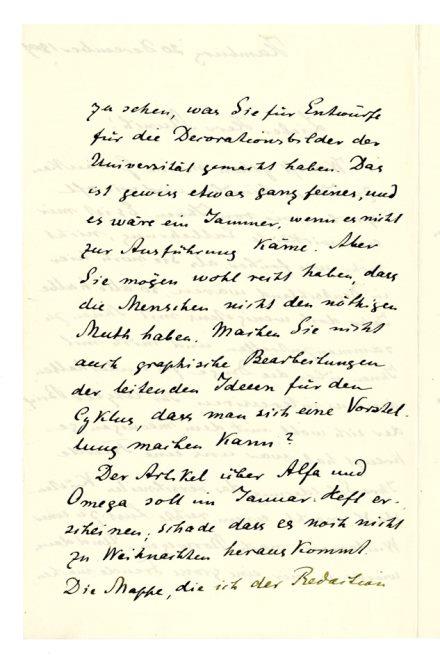 zu sehen, was Sie für Entwürfe
für die Decorationsbilder der
Universität gemacht haben. Das
ist gewiss etwas ganz feines, und
es wäre ein Jammer, wenn es nicht
zur Ausführung käme. Aber
Sie mögen wohl recht haben, dass
die Menschen nicht den nöthigen
Muth haben. Machen Sie nicht
auch graphische Bearbeitungen
der leitenden Ideeen für den
Cyklus, dass man sich eine Vorstel-
lung machen kann?
Der Artikel über Alfa und
Omega soll im Januar-Heft er-
scheinen; schade dass es noch nicht
zu Weihnachten heraus kommt.
Die Mappe, die ich der Redaction